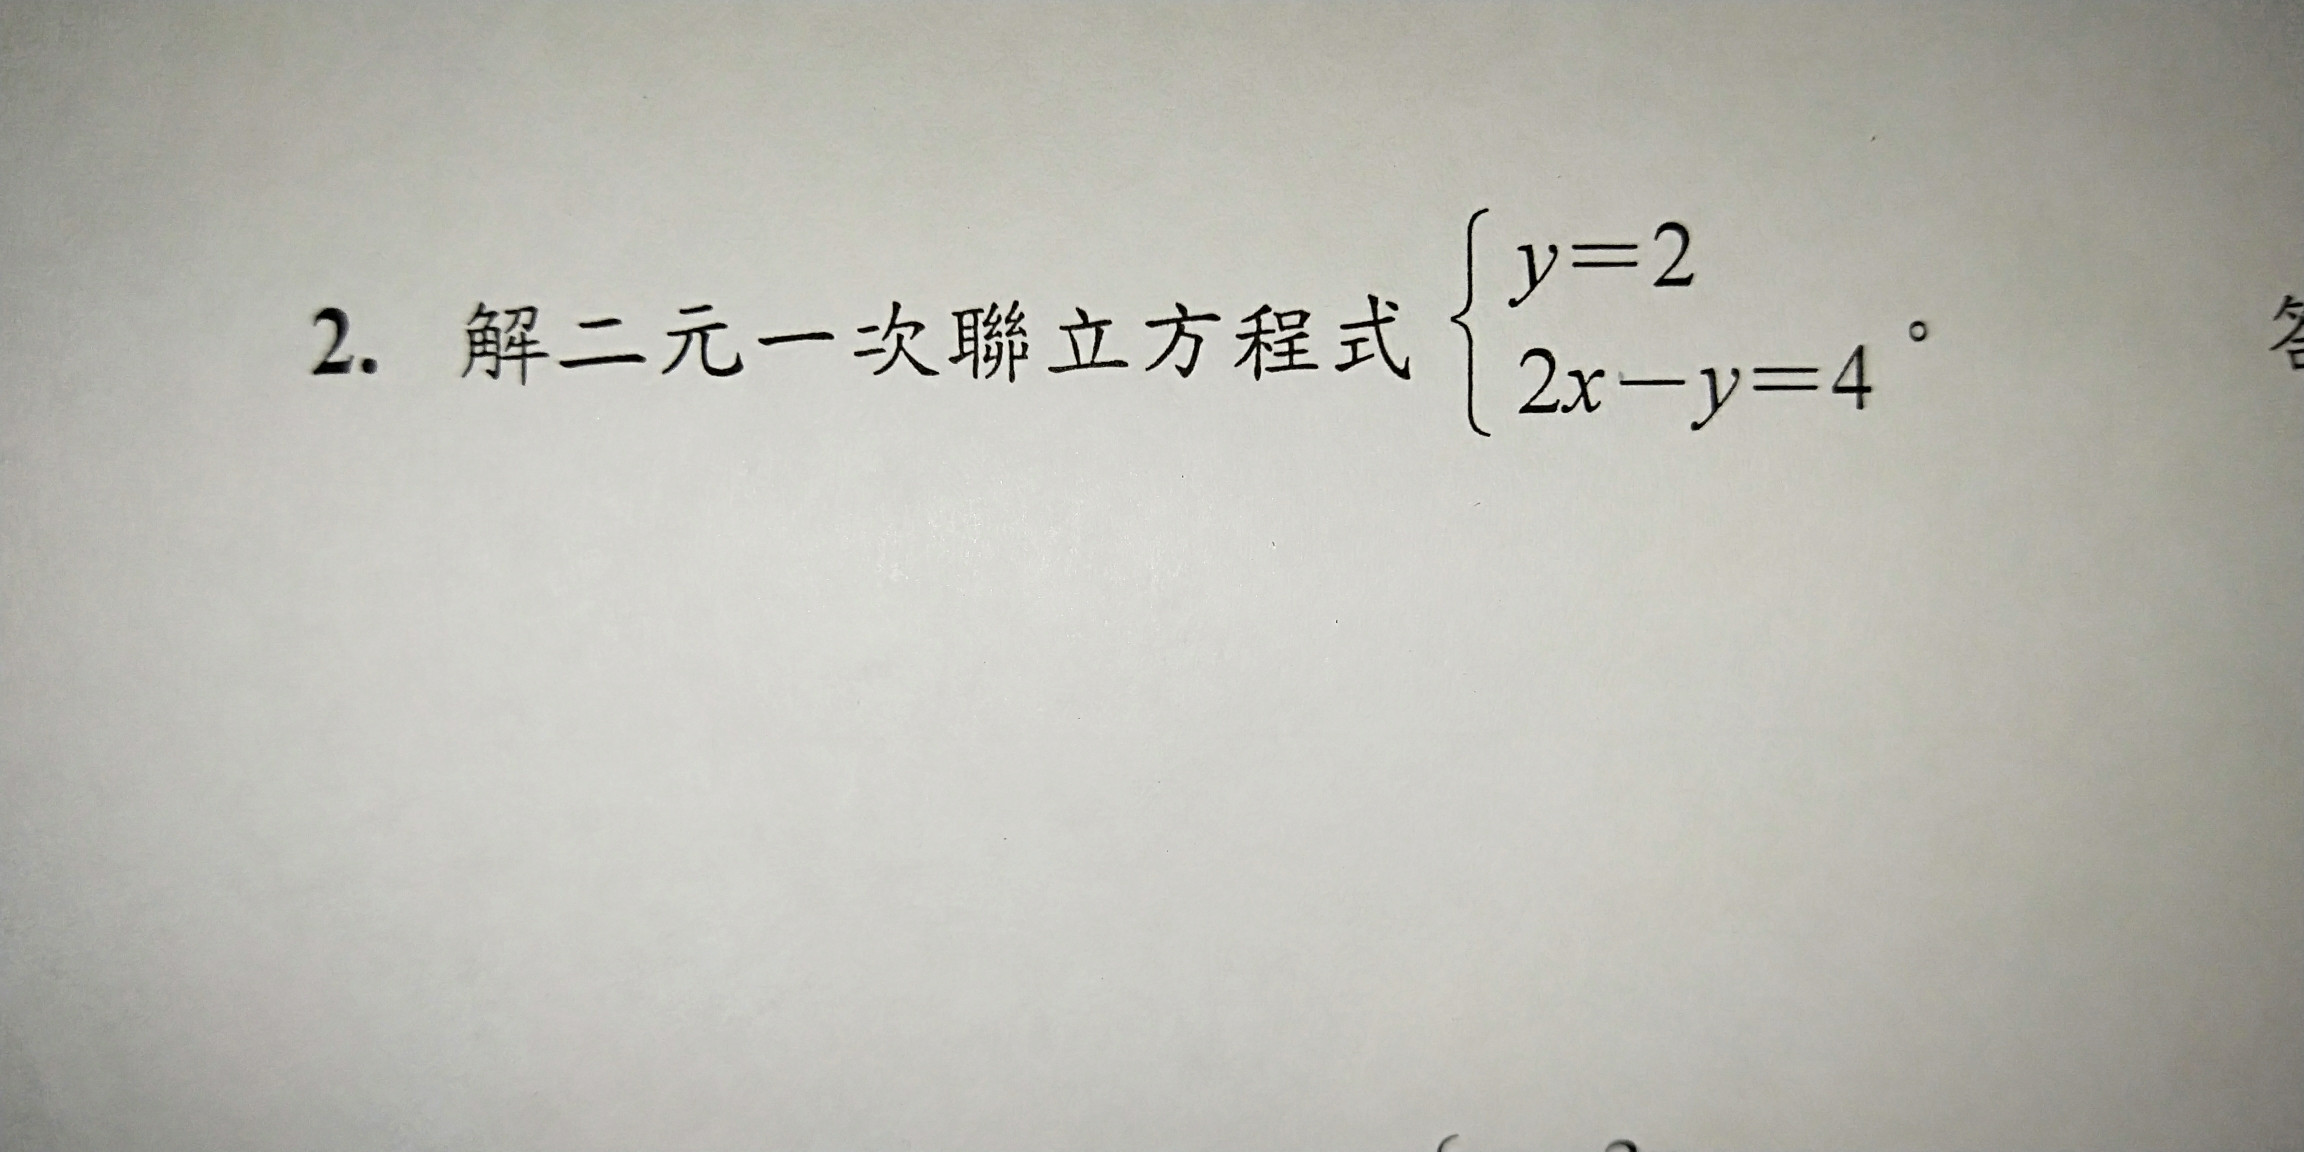 2. 解二元一次聯立方程式 { y=2
2x−y=4 。